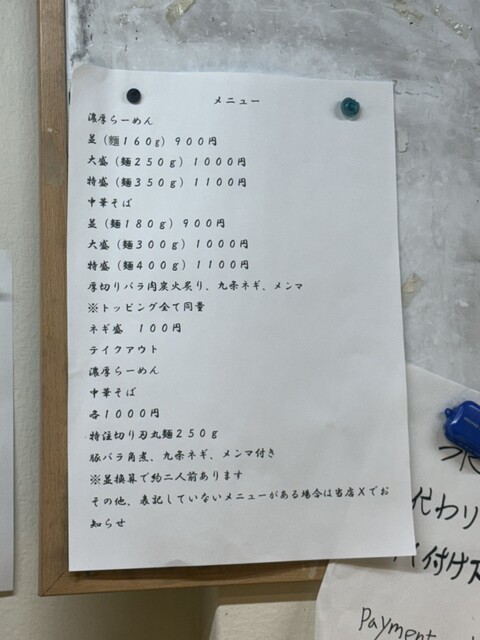 メニュー
濃厚らーめん
並（麺160g）900円
大盛（麺250g）1000円
特盛（麺350g）1100円
中華そば
並（麺180g）900円
大盛（麺300g）1000円
特盛（麺400g）1100円
厚切りバラ肉炭火炙り、九条ネギ、メンマ
※トッピング全て同量
ネギ盛　100円
テイクアウト
濃厚らーめん
中華そば
各1000円
特注切り刃丸麺250g
豚バラ角煮、九条ネギ、メンマ付き
※並換算で約二人前あります
その他、表記していないメニューがある場合は当店Xでお
知らせ
代わり
付け
Payment